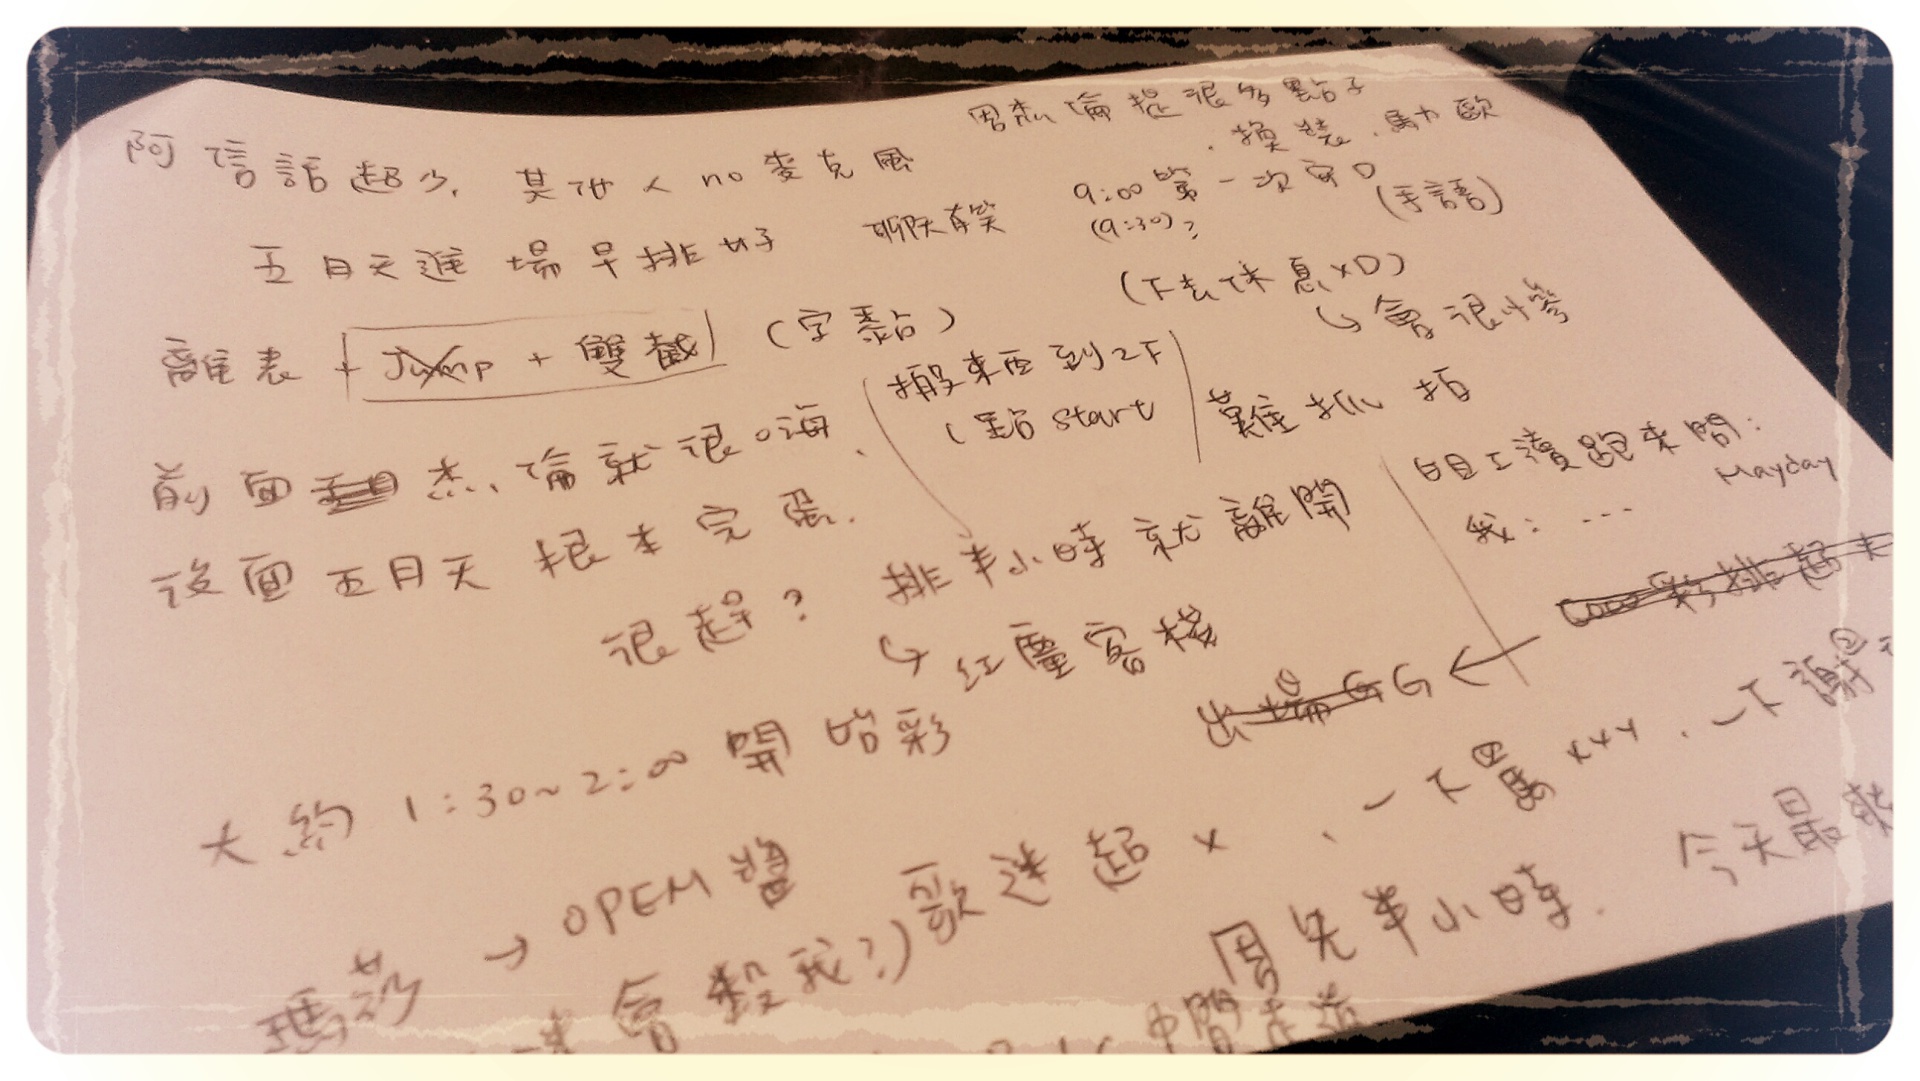 周杰倫提很多點子
.換裝.馬力歐
阿信話超少, 其他人 no 麥克風
9:00 第一次
(9:30)?
(手語)
五月天進場早排好
聊天
(下去休息XD)
↳會很慘
離表 + Jump + 雙截 (字黏)
搬東西到2F
(點 start
難抓拍
前面 杰倫就很嗨.
後面五月天根本完蛋.
工讀跑來問:
Mayday
我: ...
很趕? 排半小時就離開
↳ 紅塵客棧
彩排起來
出場 GG ←
大約 1:30~2:00 開始彩
瑪莎 → OPEM 醬
會殺我?) 歌迷超 X 、一下罵 XYY 、一下謝
周先半小時.
今天最
中間走道